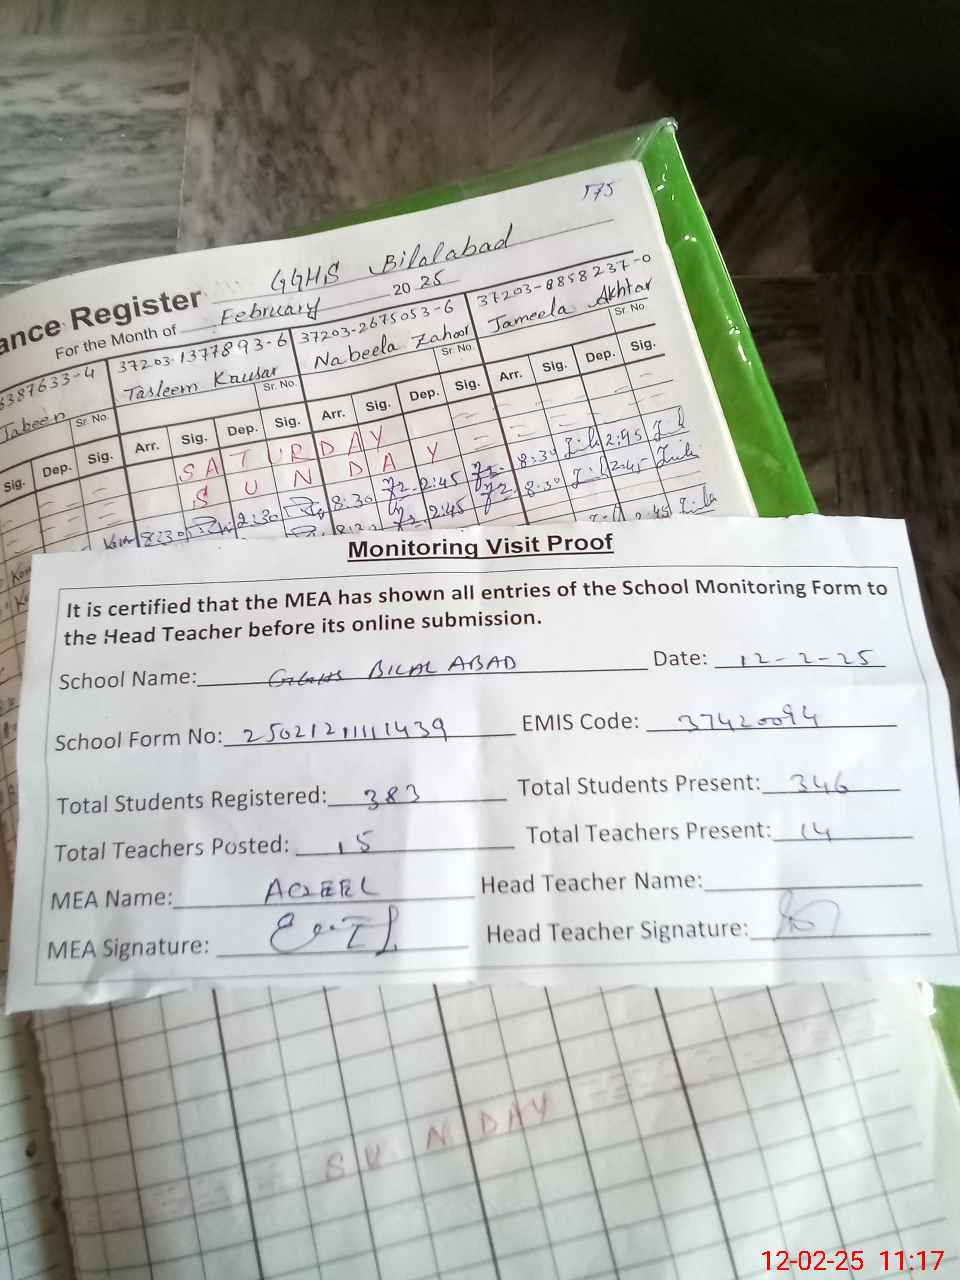 575
GGHS Bilalabad
ance Register
For the Month of February 2025
6387633-4 37203-1377893-6 37203-2675053-6 37203-8858237-0
Tabeen Sr. No. Tasleem Kausar Sr. No. Nabeela Zahoor Sr. No. Jameela Akhtar Sr No.
Sig. Dep. Sig. Arr. Sig. Dep. Sig. Arr. Sig. Dep. Sig. Arr. Sig. Dep. Sig.
SATURDAY
SUNDAY
8:30 2:30 8:30 2:45 8:30 2:45
2:45 8:30 2:45
2:45
Monitoring Visit Proof
It is certified that the MEA has shown all entries of the School Monitoring Form to
the Head Teacher before its online submission.
School Name: GGHS BILAL ABAD Date: 12-2-25
School Form No: 250212111111439 EMIS Code: 37420094
Total Students Registered: 383 Total Students Present: 346
Total Teachers Posted: 15 Total Teachers Present: 14
MEA Name: AQEEL Head Teacher Name:
MEA Signature: Head Teacher Signature:
SUNDAY
12-02-25 11:17